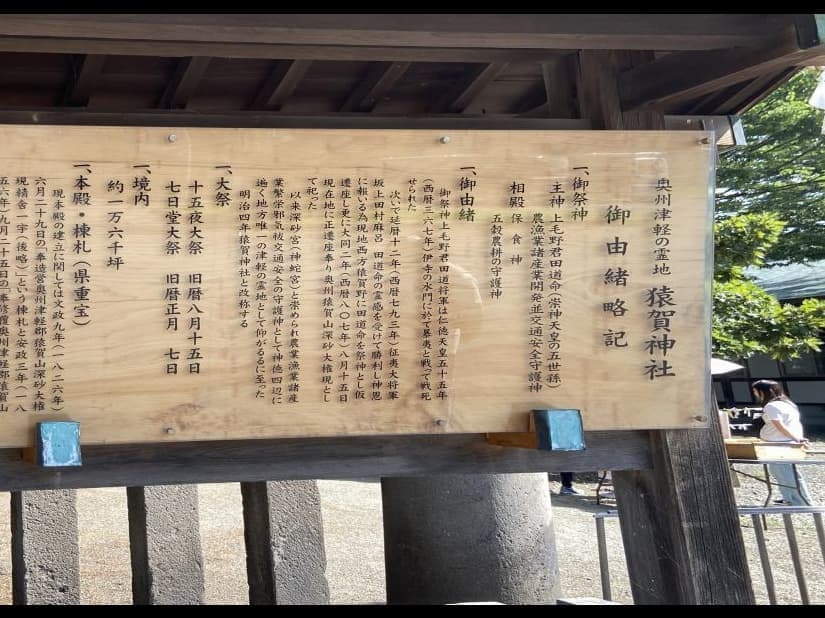 奥州津軽の霊地 猿賀神社
御由緒略記
一、御祭神
主神 上毛野君田道命(崇神天皇の五世孫)
農漁業諸産業開発並交通安全守護神
相殿 保食神
五穀農耕の守護神
一、御由緒
御祭神上毛野君田道将軍は仁徳天皇五十五年
(西暦三六七年)伊寺の水門に於て暴夷と戦て戦死
せられた
次いで延暦十二年(西暦七九三年)征夷大将軍
坂上田村麻呂 田道命の霊感を受けて勝利し神恩
に報いる為現地西方猿賀野に田道命を祭神と仮
遷座し更に大同二年(西暦八〇七年)八月十五日
現在地に正遷座奉り奥州猿賀山深砂大権現とし
て祀った
以来深砂宮(神蛇宮)と崇められ農業漁業諸産
業繁栄邪気祓交通安全の守護神として神徳四辺に
遍く地方唯一の津軽の霊地として仰がるるに至った
明治四年猿賀神社と改称する
一、大祭
十五夜大祭 旧暦八月十五日
七日堂大祭 旧暦正月 七日
一、境内
約一万六千坪
一、本殿・棟札(県重宝)
現本殿の建立に関しては文政九年(一八二六年)
六月二十九日の「奉造営奥州津軽郡猿賀山深砂大権
現精舎一宇(後略)」という棟札と安政三年(一八
五六年)九月二十五日の「奉修覆奥州津軽郡猿賀山